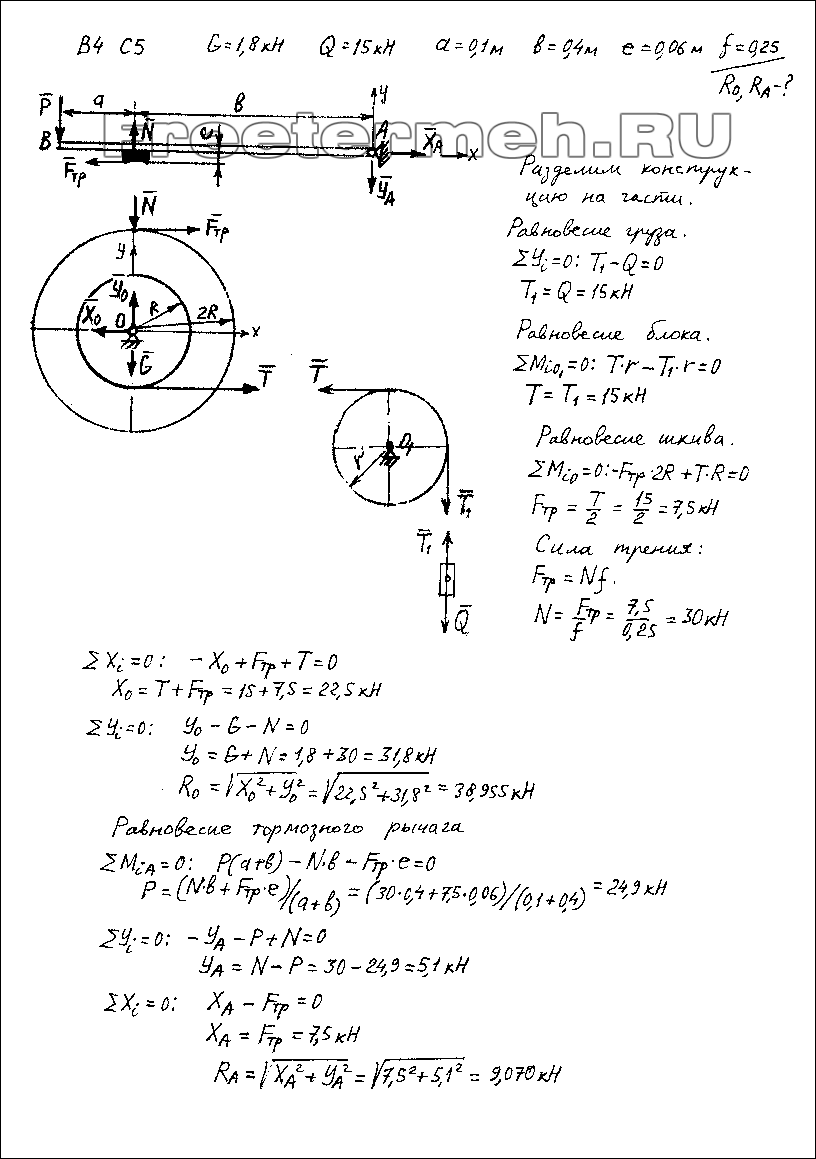 В4 С5 G=1,8кН Q=15кН a=0,1м в=0,4м e=0,06м f=0,25
R₀, R_A-?
P̄ a в y
B N̄ e A X̄_A x
F̄тр Ȳ_A
Freetermeh.RU
Разделим конструк-
цию на части.
N̄ F̄тр
y
Ȳ₀ R 2R
X̄₀ O x
Ḡ
T̄ T̄
O₁
r
T̄₁
T̄₁
Q̄
Равновесие груза.
ΣYᵢ=0: T₁-Q=0
T₁=Q=15кН
Равновесие блока.
ΣMᵢₒ₁=0: T·r-T₁·r=0
T=T₁=15кН
Равновесие шкива.
ΣMᵢₒ=0:-Fтр·2R+T·R=0
Fтр = T/2 = 15/2 = 7,5кН
Сила трения:
Fтр=Nf.
N= Fтр/f = 7,5/0,25 = 30кН
ΣXᵢ=0: -X₀+Fтр+T=0
X₀=T+Fтр=15+7,5=22,5кН
ΣYᵢ=0: Y₀-G-N=0
Y₀=G+N=1,8+30=31,8кН
R₀=√(X₀²+Y₀²)=√(22,5²+31,8²)=38,955кН
Равновесие тормозного рычага
ΣM_iA=0: P(a+в)-N·в-Fтр·e=0
P=(N·в+Fтр·e)/(a+в)=(30·0,4+7,5·0,06)/(0,1+0,4)=24,9кН
ΣYᵢ=0: -Y_A-P+N=0
Y_A=N-P=30-24,9=5,1кН
ΣXᵢ=0: X_A-Fтр=0
X_A=Fтр=7,5кН
R_A=√(X_A²+Y_A²)=√(7,5²+5,1²)=9,070кН